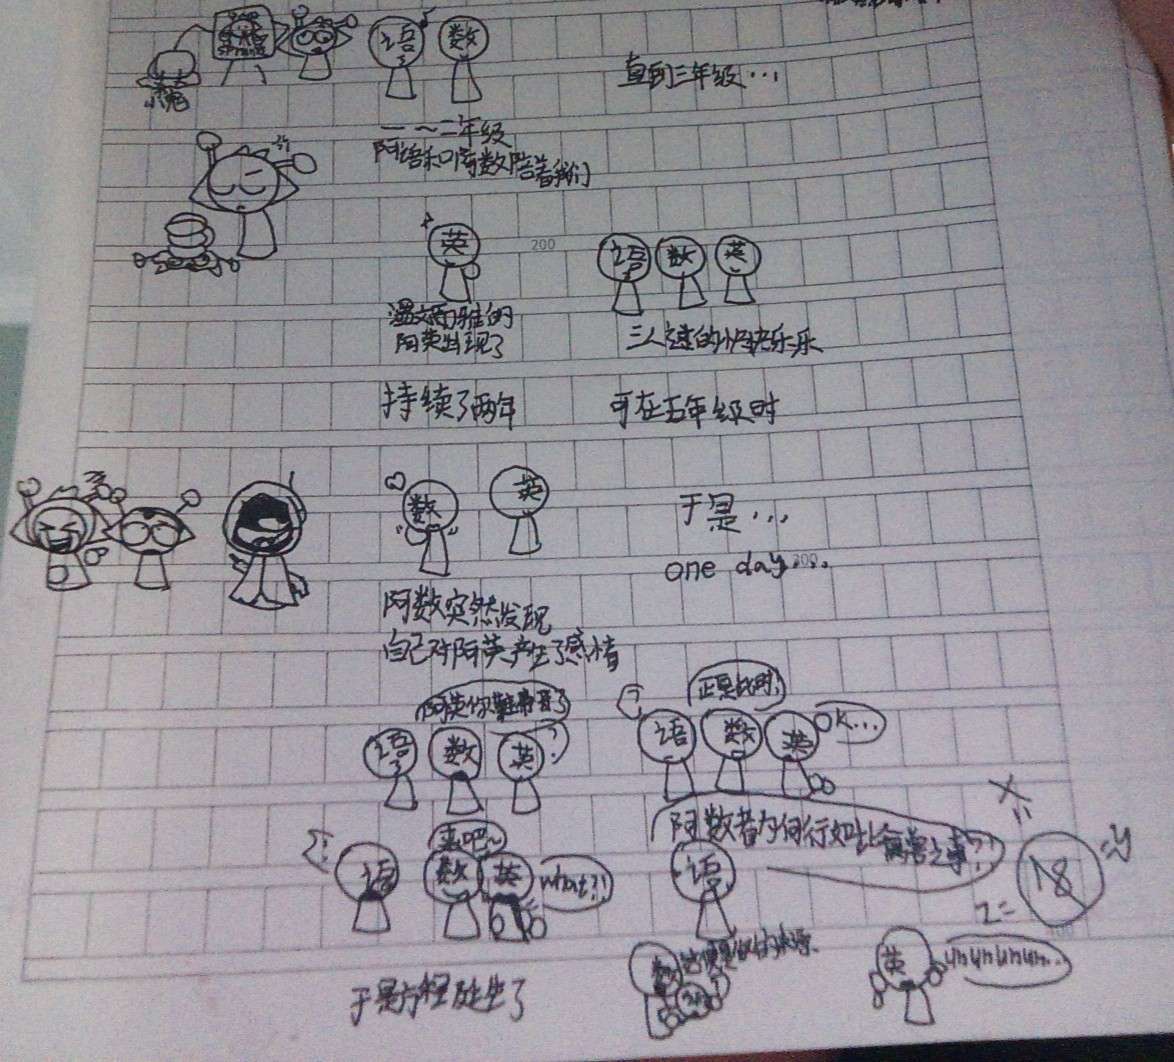 小鬼
语 数
直到三年级...
一~二年级
阿语和阿数陪着我们
英
200
语 数 英
温文而雅的
阿英出现了
三人过的小月快乐乐
持续了两年
可在五年级时
数 英
于是...
one day...
阿数突然发现
自己对阿英产生了感情
阿英你鞋带开了
语 数 英 ?
正是此时!
? 语 数 英 OK...
来吧~
语 数 英 what?!
阿数者为何行如此禽兽之事?!
语
X=
=y
z=
18
数
英 ununununun...
于是方程诞生了